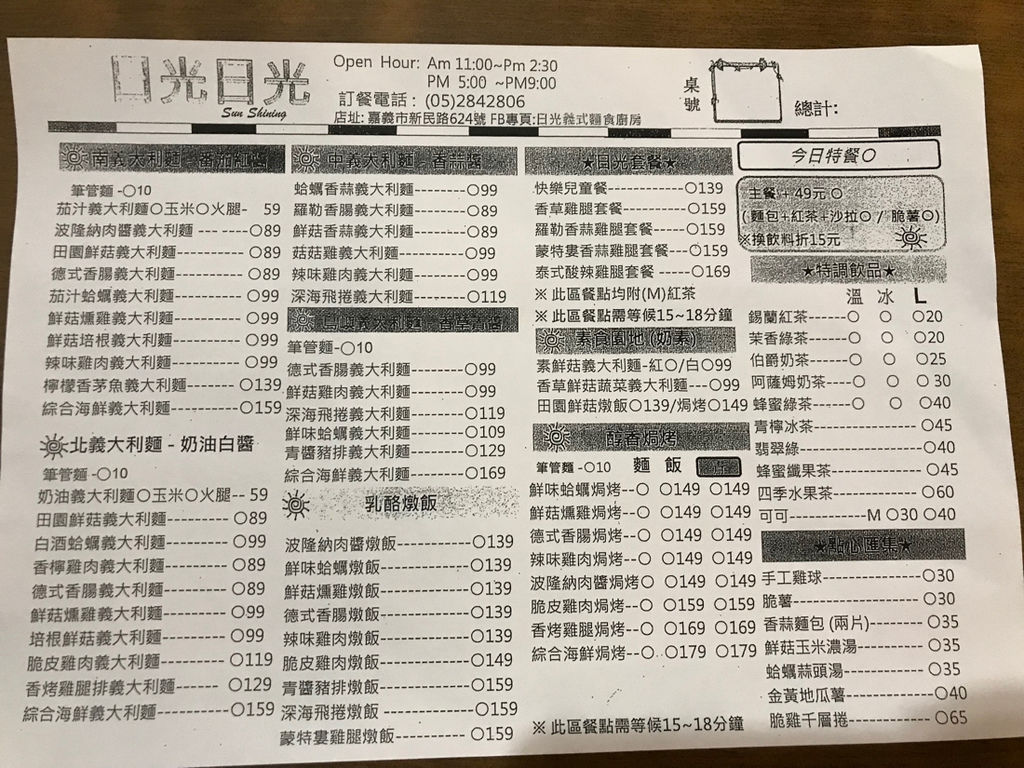 日光日光
Sun Shining
Open Hour: Am 11:00~Pm 2:30
PM 5:00 ~PM9:00
訂餐電話: (05)2842806
店址: 嘉義市新民路624號 FB專頁:日光義式麵食廚房
桌號
總計:
南義大利麵-番茄紅醬
筆管麵-○10
茄汁義大利麵○玉米○火腿- 59
波隆納肉醬義大利麵 --- ---○89
田園鮮菇義大利麵---------○89
德式香腸義大利麵---------○89
茄汁蛤蠣義大利麵---------○99
鮮菇燻雞義大利麵---------○99
鮮菇培根義大利麵---------○99
辣味雞肉義大利麵---------○99
檸檬香茅魚義大利麵-------○139
綜合海鮮義大利麵----------○159
北義大利麵 - 奶油白醬
筆管麵 -○10
奶油義大利麵○玉米○火腿-- 59
田園鮮菇義大利麵--------- ○89
白酒蛤蠣義大利麵--------- ○99
香檸雞肉義大利麵--------- ○89
德式香腸義大利麵--------- ○89
鮮菇燻雞義大利麵--------- ○99
培根鮮菇義大利麵--------- ○99
脆皮雞肉義大利麵--------- ○119
香烤雞腿排義大利麵------ ○129
綜合海鮮義大利麵----------○159
中義大利麵-香蒜醬
蛤蠣香蒜義大利麵--------○99
羅勒香腸義大利麵--------○89
鮮菇香蒜義大利麵--------○89
菇菇雞義大利麵-----------○99
辣味雞肉義大利麵--------○99
深海飛捲義大利麵--------○119
義大利麵-香草青醬
筆管麵-○10
德式香腸義大利麵--------○99
鮮菇雞肉義大利麵--------○99
深海飛捲義大利麵--------○119
鮮味蛤蠣義大利麵--------○109
青醬豬排義大利麵--------○129
綜合海鮮義大利麵--------○169
乳酪燉飯
波隆納肉醬燉飯----------○139
鮮味蛤蠣燉飯-------------○139
鮮菇燻雞燉飯-------------○139
德式香腸燉飯-------------○139
辣味雞肉燉飯-------------○139
脆皮雞肉燉飯-------------○149
青醬豬排燉飯-------------○159
深海飛捲燉飯 ------------○159
蒙特婁雞腿燉飯----------○159
★日光套餐★
快樂兒童餐-------------○139
香草雞腿套餐-----------○159
羅勒香蒜雞腿套餐------○159
蒙特婁香蒜雞腿套餐---○159
泰式酸辣雞腿套餐 -----○169
※ 此區餐點均附(M)紅茶
※ 此區餐點需等候15~18分鐘
素食園地 (奶素)
素鮮菇義大利麵-紅○/白○99
香草鮮菇蔬菜義大利麵---○99
田園鮮菇燉飯○139/焗烤○149
醇香焗烤
筆管麵 -○10 麵 飯
鮮味蛤蠣焗烤--○ ○149 ○149
鮮菇燻雞焗烤--○ ○149 ○149
德式香腸焗烤--○ ○149 ○149
辣味雞肉焗烤--○ ○149 ○149
波隆納肉醬焗烤○ ○149 ○149
脆皮雞肉焗烤--○ ○159 ○159
香烤雞腿焗烤--○ ○169 ○169
綜合海鮮焗烤--○ ○179 ○179
※ 此區餐點需等候15~18分鐘
今日特餐○
主餐+ 49元 ○
( 麵包+紅茶+沙拉○ / 脆薯○)
※換飲料折15元
★特調飲品★
溫 冰 L
錫蘭紅茶----○ ○ ○20
茉香綠茶----○ ○ ○20
伯爵奶茶----○ ○ ○25
阿薩姆奶茶---○ ○ ○30
蜂蜜綠茶----○ ○ ○40
青檸冰茶---------------○45
翡翠綠-----------------○40
蜂蜜纖果茶------------○45
四季水果茶------------○60
可可-----------M ○30 ○40
★點心匯集★
手工雞球--------------○30
脆薯-------------------○30
香蒜麵包 (兩片)--------○35
鮮菇玉米濃湯----------○35
蛤蠣蒜頭湯------------○35
金黃地瓜薯------------○40
脆雞千層捲------------○65